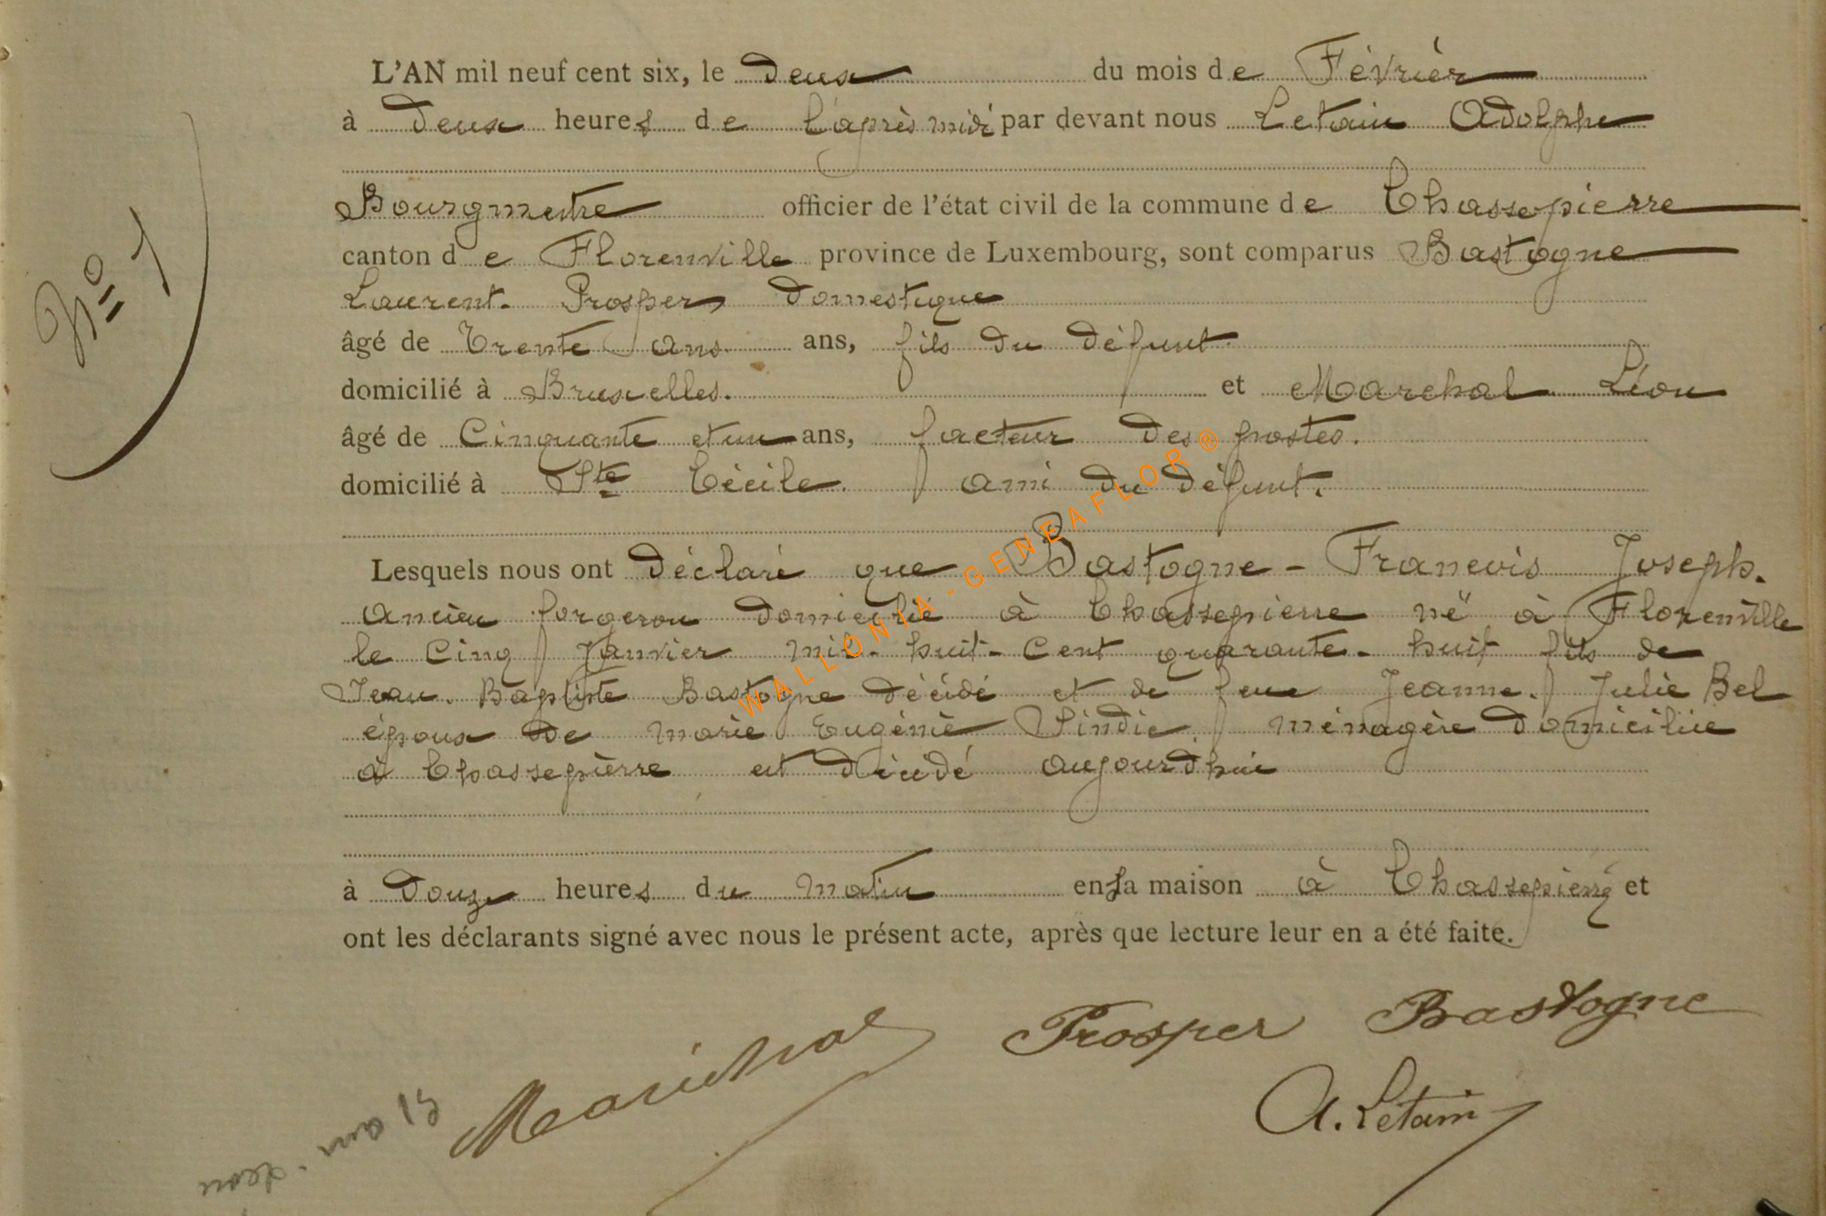 L'AN mil neuf cent six, le deux du mois de Février
à deux heures de l'après midi par devant nous Letain Adolphe
Bourgmestre officier de l'état civil de la commune de Chassepierre
N° 1
canton de Florenville province de Luxembourg, sont comparus Bastogne
Laurent. Prosper, domestique
âgé de Trente ans ans, fils du défunt.
domicilié à Bruxelles. et Marchal Léon
âgé de Cinquante et un ans, facteur des postes.
domicilié à Ste Cécile. ami du défunt.
Lesquels nous ont déclaré que Bastogne - Francois Joseph.
ancien forgeron domicilié à Chassepierre né à Florenville
le cinq Janvier mil- huit- cent quarante- huit fils de
Jean. Baptiste Bastogne décédé et de feue Jeanne. Julie Bel
époux de Marie Eugénie Sindic, ménagère domiciliée
à Chassepierre est décédé aujourdhui
à douze heures du matin en sa maison à Chassepierre et
ont les déclarants signé avec nous le présent acte, après que lecture leur en a été faite.
Prosper Bastogne
Maréchal
A. Letain
WALLONIA-GENEAFLOR®